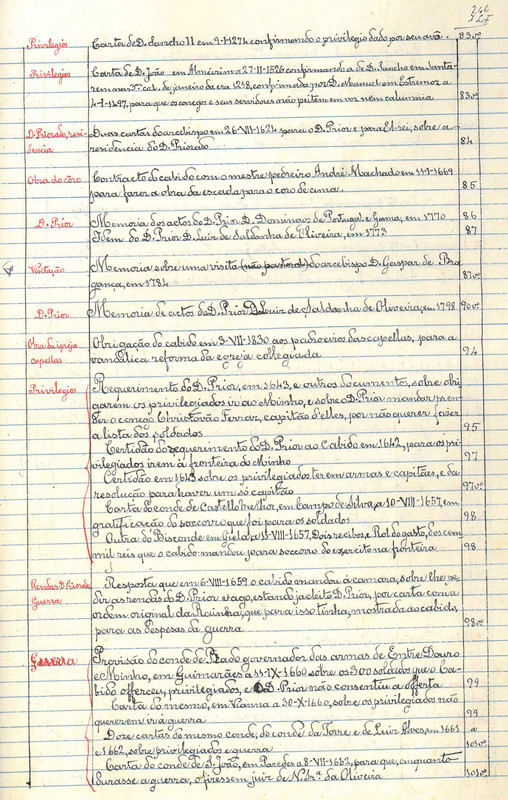 246
Privilegios Carta de D. Sancho II em 9-I-1274 confirmando o privilegio dado por seu avô. 83vº
Privilegios Carta de D. João em Almeirim a 27-II-1526 confirmando a de D. Sancho em Santa-
rem nas cal. de janeiro da era 1258, confirmada por D. Manuel em Estremoz a
4-I-1497, para que os conegos e seus servidores não peitem em voz nem calumnia 83vº
D. Priorado, resi-
dencia Duas cartas do arcebispo em 26-VII-1624 para o D. Prior e para El-rei, sobre a
residencia do D. Priorado 84
Obra do côro Contracto do cabido com o mestre pedreiro André Machado em 11-I-1669
para fazer a obra da escada para o côro de cima. 85
D. Prior Memoria dos actos do D. Prior D. Domingos de Portugal e Gama, em 1770 86
Idem do D. Prior D. Luiz de Saldanha de Oliveira, em 1773 87
Visitação Memoria sobre uma visita (não pastoral) do arcebispo D. Gaspar de Bra-
gança, em 1784 87vº
D. Prior Memoria de actos do D. Prior D. Luiz de Saldanha de Oliveira, em 1798 90vº
Obra da igreja
capellas Obrigação do cabido em 3-VII-1830 aos padroeiros das capellas, para a
vandalica reforma da egreja collegiada 94
Privilegios Requerimento do D. Prior, em 1643, e outros documentos, sobre obri-
garem os privilegiados ir ao Minho, e sobre o D. Prior mandar pren-
der o conego Christovão Ferraz, capitão d'elles, por não querer fazer
a lista dos soldados 95
Certidão do requerimento do D. Prior ao Cabido em 1642, para os pri-
vilegiados irem á fronteira do Minho 97
Certidão em 1643 sobre os privilegiados terem armas e capitães, e da
resolução para haver um só capitão 97vº
Carta do conde de Castello melhor, em Campo de Silva, a 10-VIII-1657, em
gratificação do soccorro que foi para os soldados 98
Outra do Bisconde em Giela, a 11-VIII-1657, Dois recibos, e Rol do gasto, dos cem
mil reis que o cabido mandou para soccoro do exercito na fronteira 98
Guerra Resposta que em 6-VIII-1659 o cabido mandou á camara, sobre lhe pe-
dir as rendas do D. Prior vago, estando já eleito D. Prior, por carta com a
ordem original da Rainha, que para isso tinha, mostrada ao cabido,
para as despesas da guerra 98vº
Guerra Provisão do conde de Prado governador das armas de Entre Douro
e Minho, em Guimarães a 11-IX-1660 sobre os 300 soldados que o Ca-
bido offerceu, privilegiados, e o D. Prior não consentiu a offerta 99
Carta do mesmo, em Vianna a 30-X-1660, sobre os privilegiados não
quererem ir á guerra 99
Doze cartas do mesmo conde, do conde da Torre e de Luiz Alves, em 1661 a
e 1662, sobre privilegiados e guerra 101vº
Carta do conde de S. João, em Paredes a 8-VII-1662, para que, emquanto
durasse a guerra, o fizessem juiz de N. Srª da Oliveira 101vº